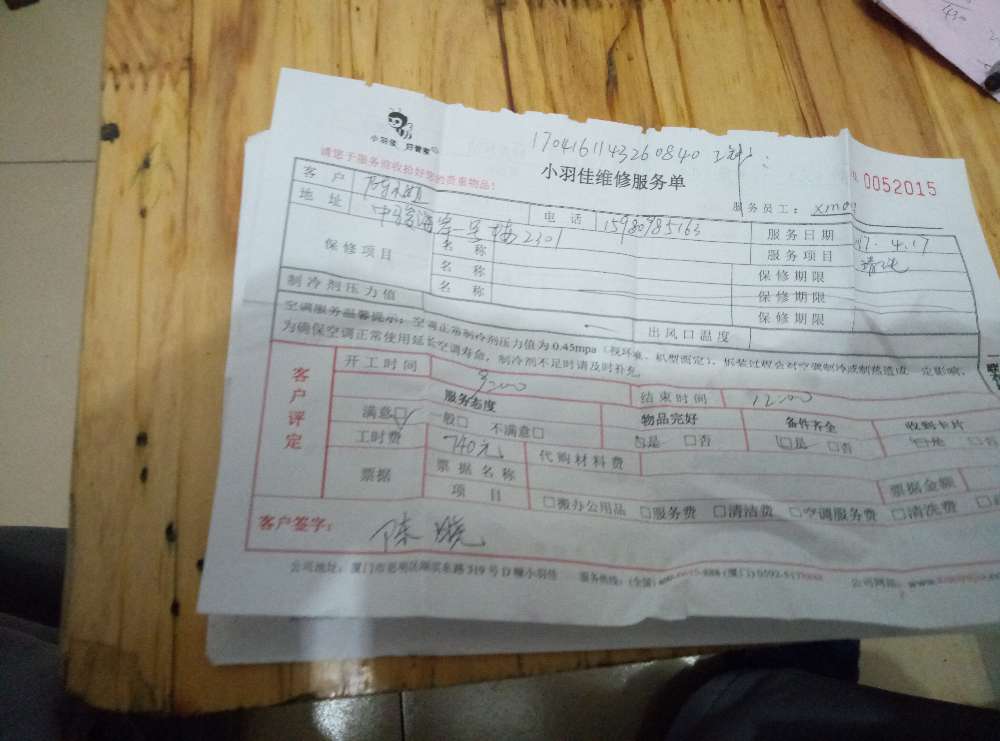 430
1704161143260840
小羽佳 好管家
小羽佳维修服务单
0052015
请您于服务前收拾好您的贵重物品!
服务员工:
客户 电话 15980985163 服务日期 17.4.17
地址 2301 服务项目 清洗
保修项目 名称 保修期限
名称 保修期限
名称 保修期限
制冷剂压力值 出风口温度
空调服务温馨提示:空调正常制冷剂压力值为0.45mpa(视环境、机型而定),拆装过程会对空调制冷或制热造成一定影响,
为确保空调正常使用延长空调寿命,制冷剂不足时请及时补充
客户评定
开工时间 9:00 结束时间 12:00
服务态度 物品完好 备件齐全 收到卡片
满意□ 一般□ 不满意□ □是 □否 □是 □否 □是 □否
工时费 740元 代购材料费
票据 票据名称 票据金额
项目 □搬办公用品 □服务费 □清洁费 □空调服务费 □清洗费
客户签字: 陈晓
公司地址:厦门市思明区湖滨东路319号D幢小羽佳 服务热线:(全国) (厦门)0592- 公司网站: